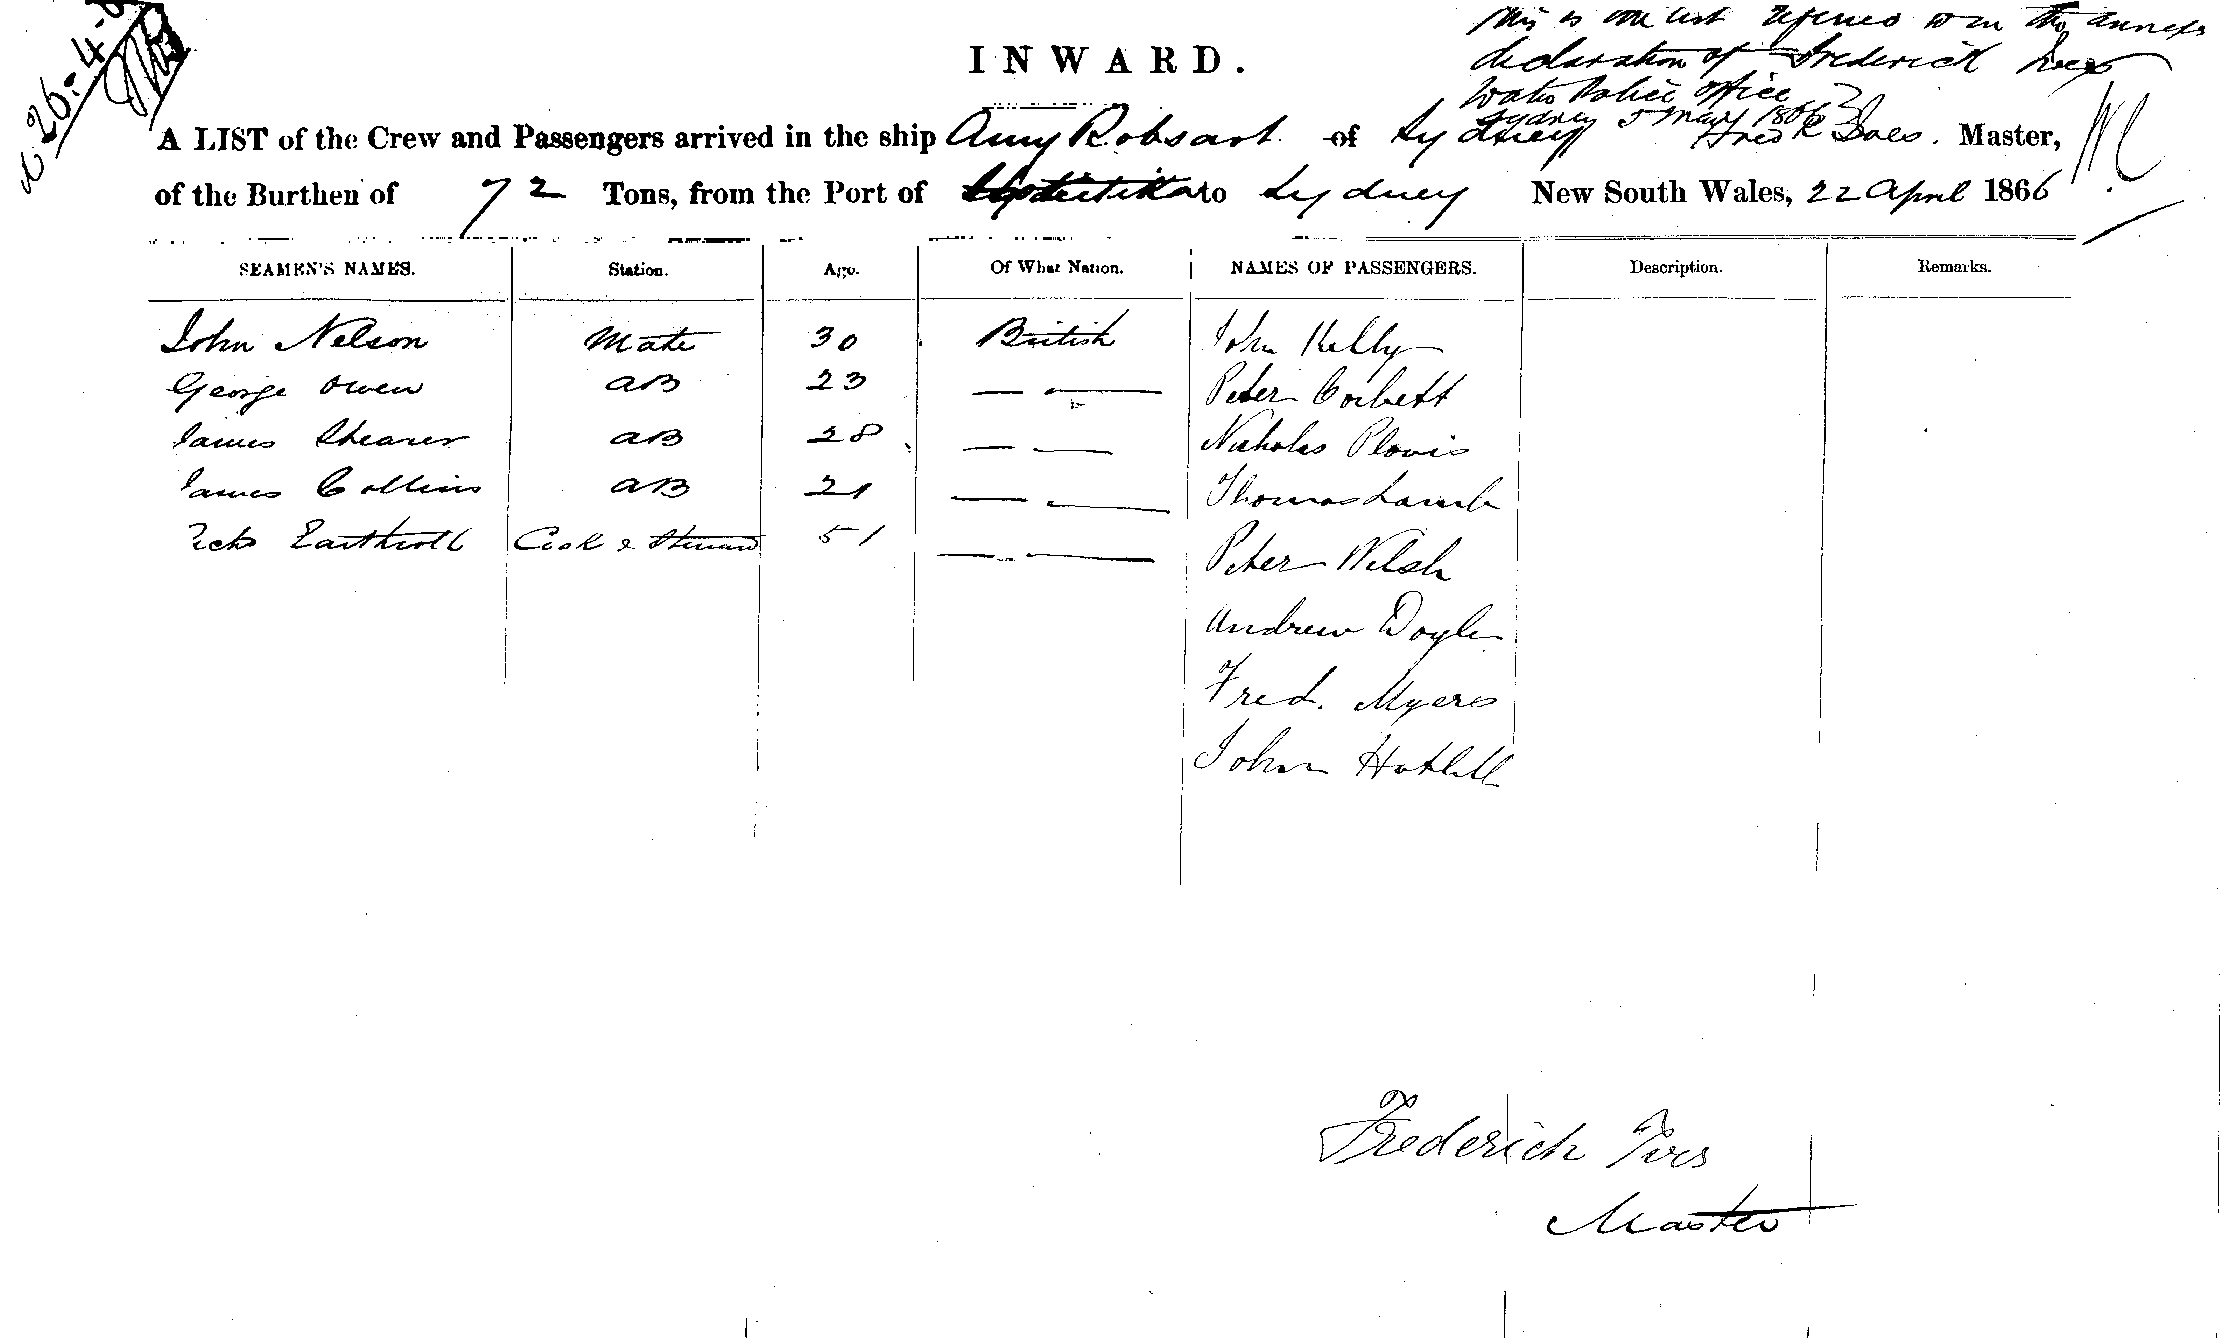 26-4-6
This is the list referred to in the annexed
declaration of Frederick
Water Police Office
Sydney 5 May 1866
INWARD.
A LIST of the Crew and Passengers arrived in the ship Amy Robsart of Sydney Fredk Master,
of the Burthen of 72 Tons, from the Port of to Sydney New South Wales, 22 April 1866
SEAMEN'S NAMES. Station. Age. Of What Nation. NAMES OF PASSENGERS. Description. Remarks.
John Nelson Mate 30 British John Kelly
George Owen AB 23 — — Peter Corbett
James Shearer AB 28 — — Nicholas Plovis
James Collins AB 21 — — Thomas Lamb
Cook & Steward 51 — — Peter Welsh
Andrew Doyle
Fred. Myers
John
Frederick
Master